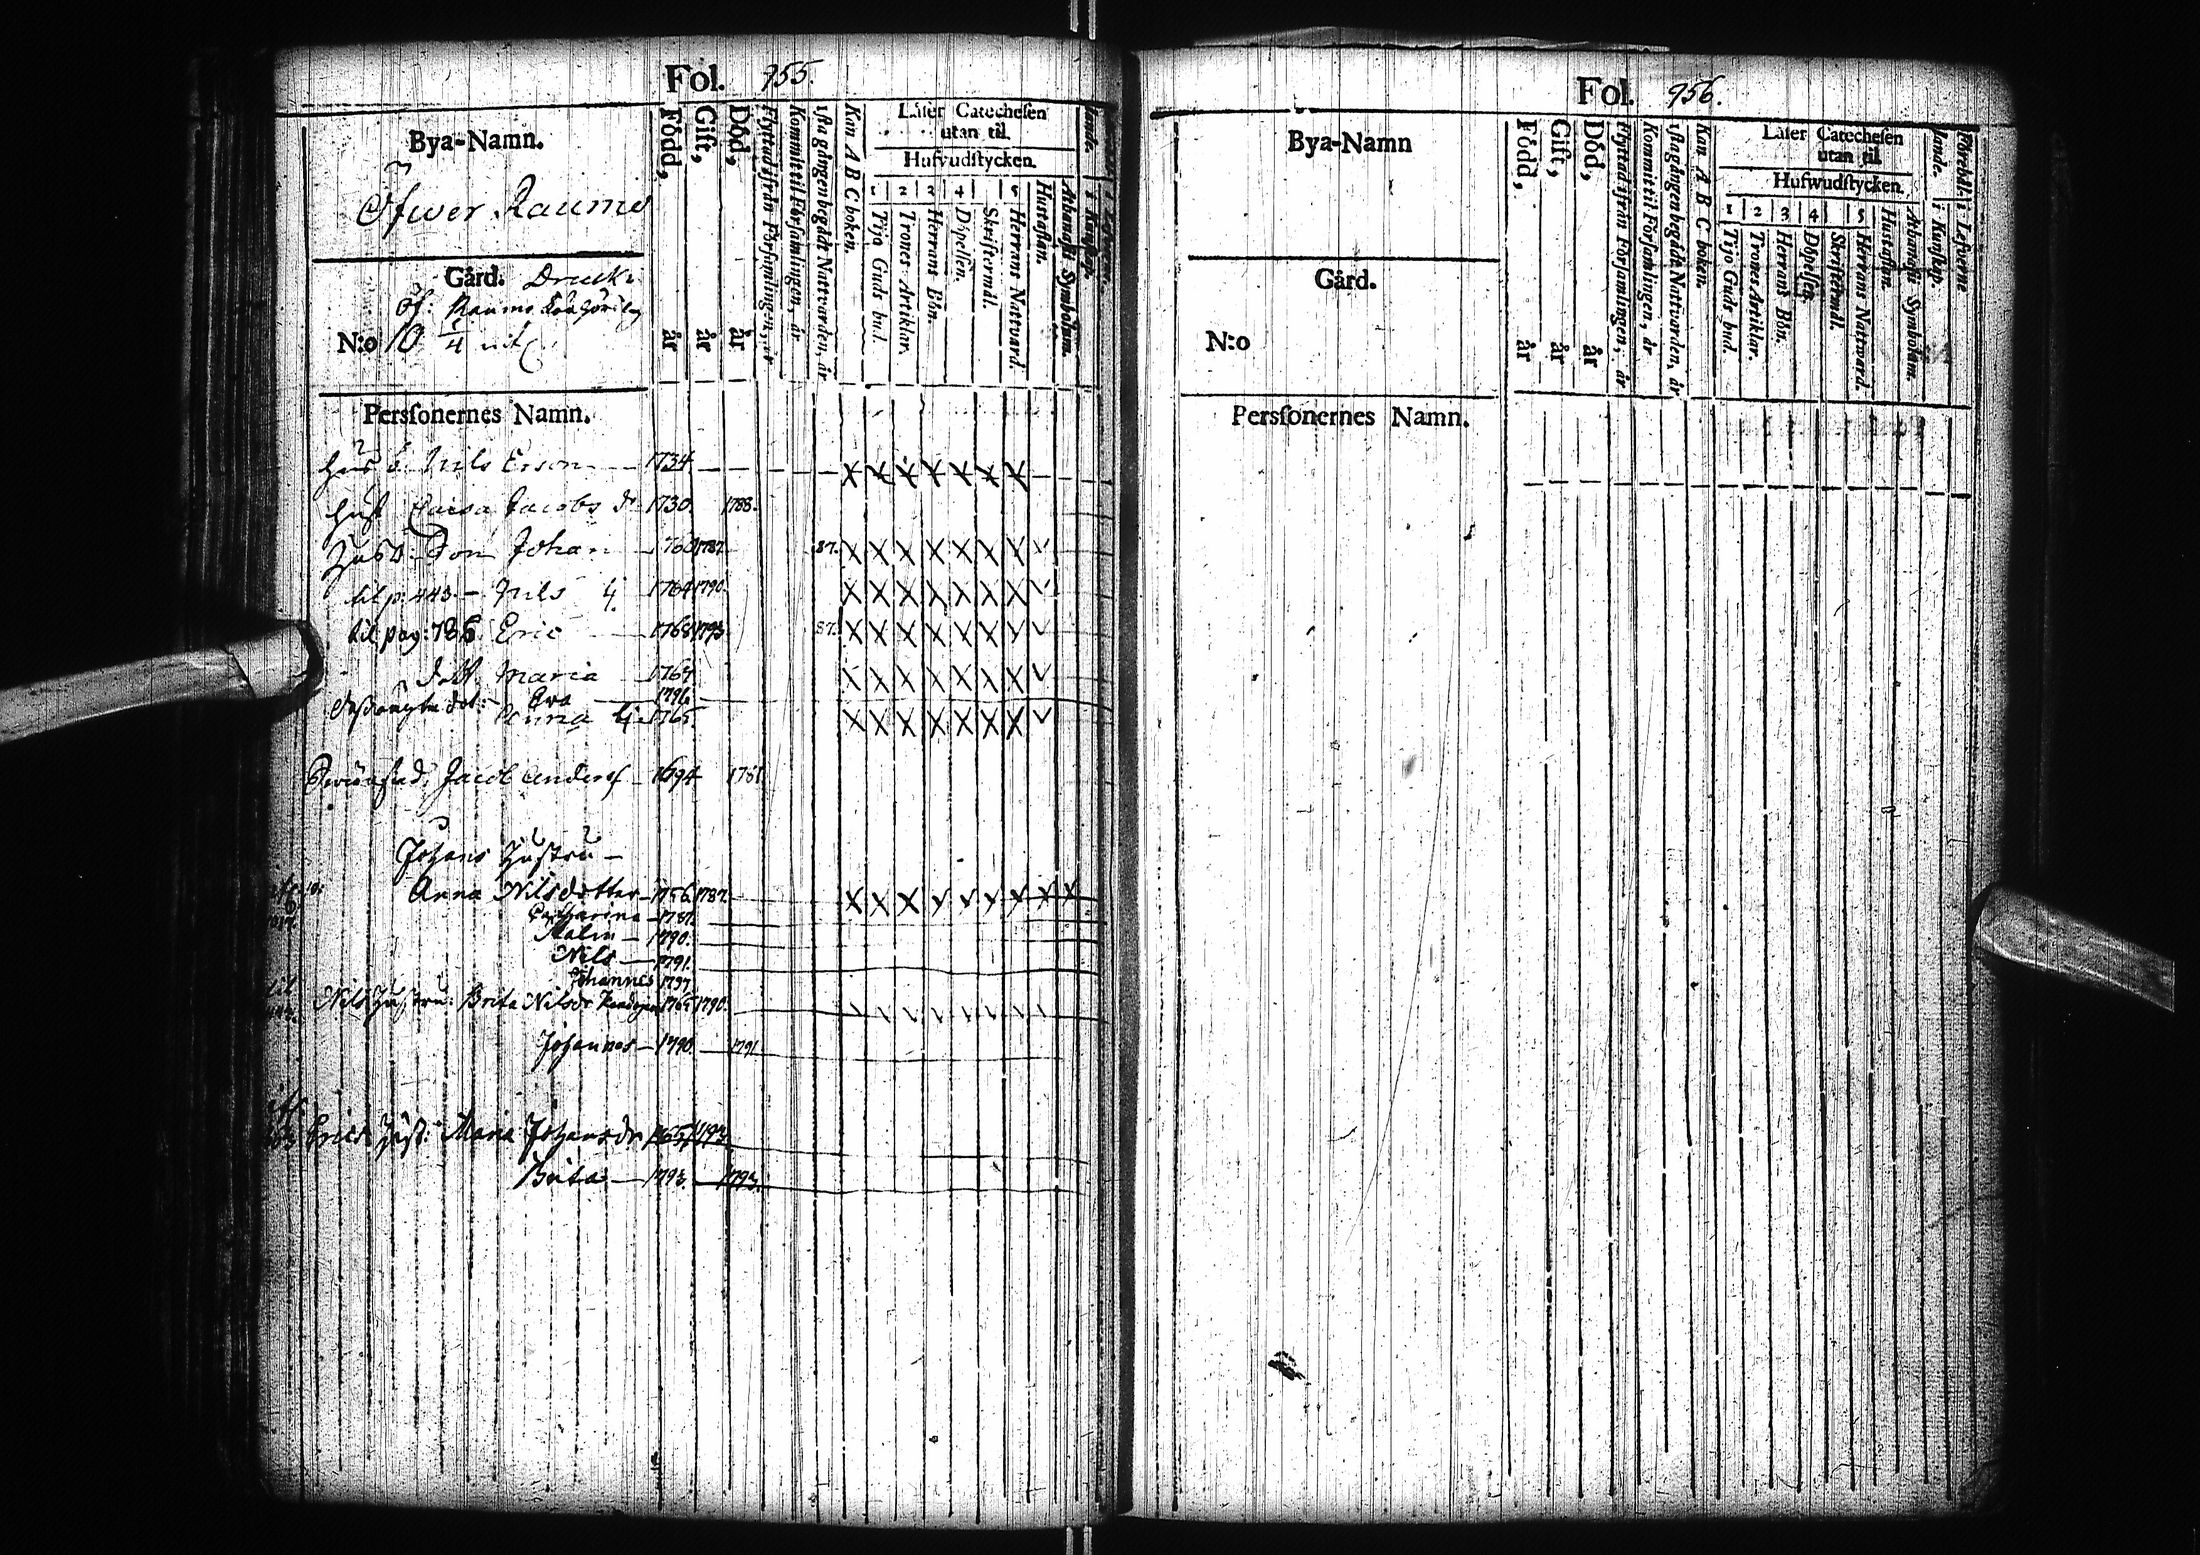 Fol. 955.
Bya-Namn.
Öfwer Rauma
Gård.
Öf: Rauma
N:o 10 1/4
Född, år
Gift, år
Död, år
Flyttad ifrån Församlingen, år
Kommit til Församlingen, år
1sta gången begådt Nattvarden, år
Kan A B C boken.
Läser Catechesen
utan til.
Hufvudstycken.
1 2 3 4 5
Tijo Guds bud.
Trones Artiklar.
Herrans Bön.
Döpelsen.
Skriftermål.
Herrans Nattvard.
Hustaflan.
Athanasii Symbolum.
i Kunskap.
Perssonernes Namn.
Nils Ersson 1734.
Hust Caisa Jacobs dr 1730. 1788.
Son Johan 1760 1787. 87.
til p: 443. Nils 1764 1790.
til pag: 786 Eric 1768 1793 87.
dott. Maria 1767
Eva 1796
Anna 1765.
Jacob Anderss 1694 1781.
Johans Hustru
Anna Nilsdotter 1756. 1787.
Catharina 1787.
Malin 1790.
Nils 1791.
Johannes 1797
Nils Hustru: Brita Nilsdr 1765 1790.
Johannes 1790. 1791
Erics Hust: Maria Johansdr 1793
Brita 1793. 1793.
Fol. 956.
Bya-Namn
Gård.
N:o
Född, år
Gift, år
Död, år
Flyttad ifrån Församlingen, år
Kommit til Församlingen, år
1sta gången begådt Nattvarden, år
Kan A B C boken.
Läser Catechesen
utan til.
Hufwudstycken.
1 2 3 4 5
Tijo Guds bud.
Trones Artiklar.
Herrans Bön.
Döpelsen
Skriftermål.
Herrans Nattward.
Hustaflan.
Athanasii Symbolum.
Förebål-lande.
i Kunskap.
i Lefverne
Perssonernes Namn.